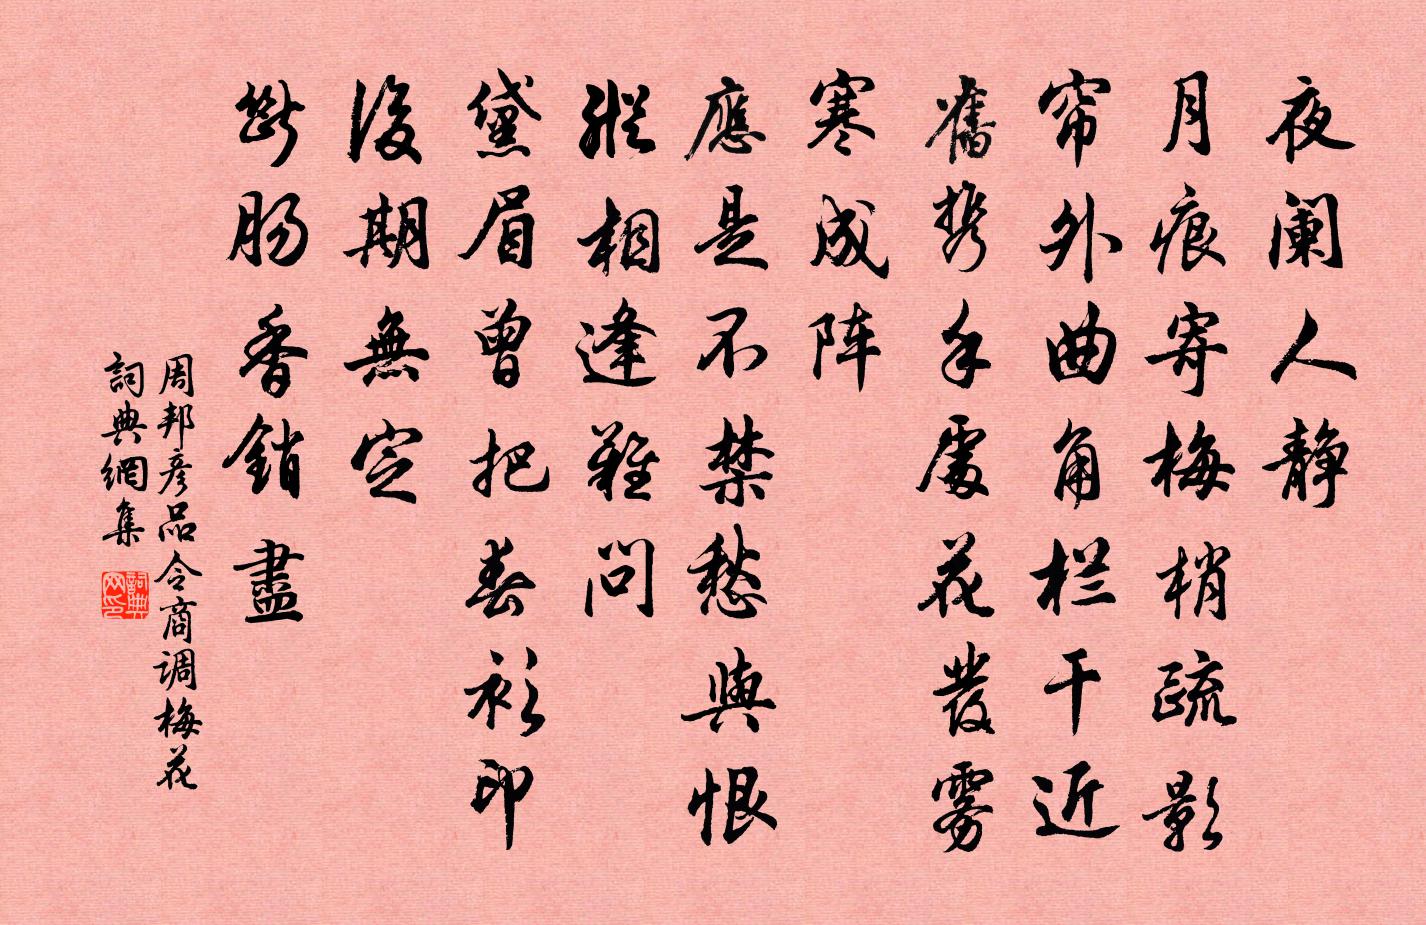 夜阑人静
月痕寄梅梢疏影
帘外曲角栏干近
舊携手處花發雾
寒成阵
應是不禁愁與恨
縱相逢難問
黛眉曾把春衫印
後期無定
斷肠香銷盡
周邦彦品令商调梅花
詞典網集
詞典网印